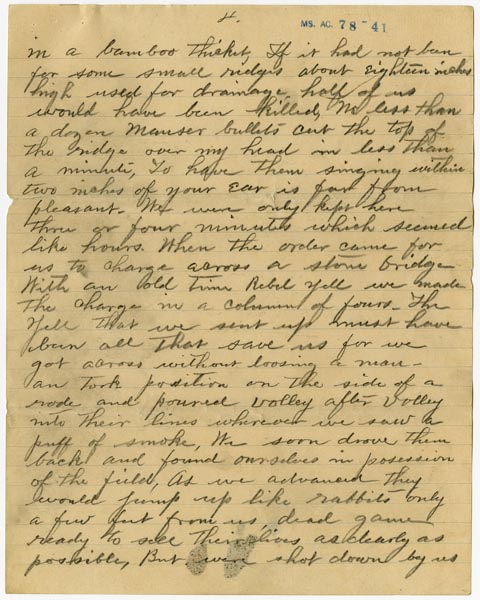 4
MS. AC. 78-41
in a bamboo thicket, If it had not been
for some small ridges about Eighteen inches
high used for dramage, half of us
would have been killed, No less than
a dozen Mauser bullets cut the top of
the ridge over my head in less than
a minute, To have them singing within
two inches of your Ear is far from
pleasant. We were only kept here
three or four minutes which seemed
like hours. When the order came for
us to charge across a stone bridge
With an old time Rebel Yell we made
the charge in a column of fours. The
Yell that we sent up must have
been all that save us for we
got across without loosing a man -
an took position on the side of a
rode and poured volley after volley
into their lines wherever we saw a
puff of smoke, We soon drove them
back and found ourselves in posession
of the field, As we advanced they
would jump up like rabbits only
a few feet from us, dead game
ready to sell their lives as dearly as
possible, But were shot down by us